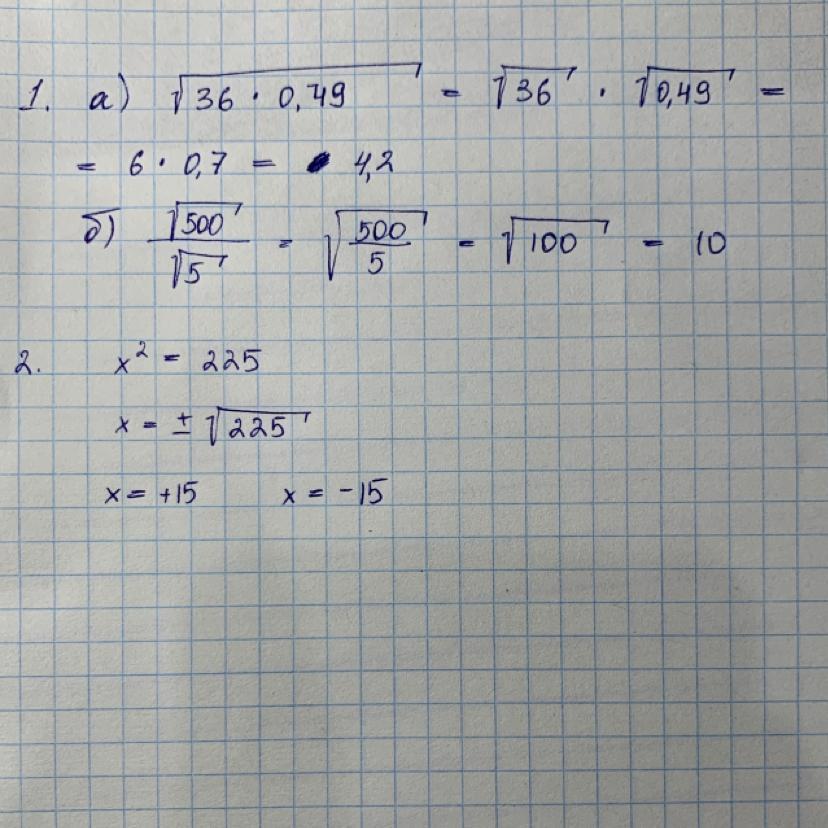 1. а) √(36 · 0,49) = √36 · √0,49 =
= 6 · 0,7 = 4,2
б) √500/√5 = √(500/5) = √100 = 10
2. x² = 225
x = ± √225
x = +15 x = -15